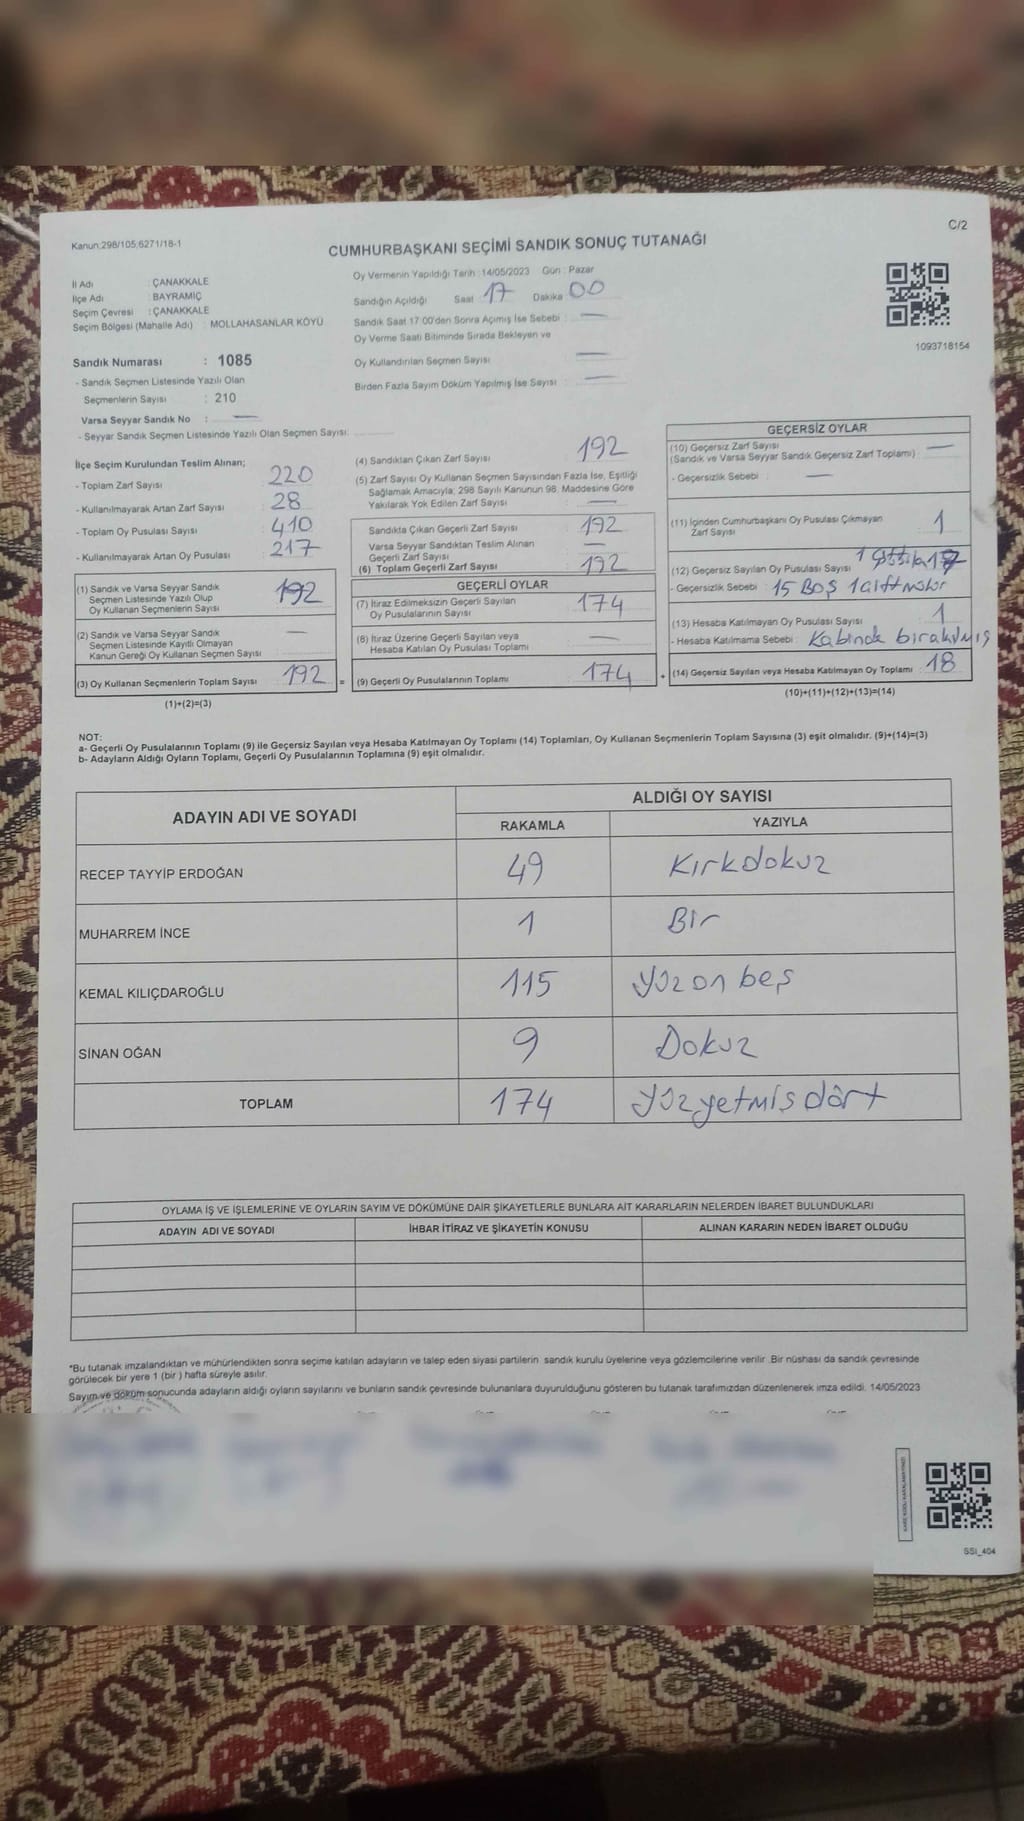 C/2
Kanun;298/105;6271/18-1
CUMHURBAŞKANI SEÇİMİ SANDIK SONUÇ TUTANAĞI
İl Adı : ÇANAKKALE
İlçe Adı : BAYRAMİÇ
Seçim Çevresi : ÇANAKKALE
Seçim Bölgesi (Mahalle Adı) : MOLLAHASANLAR KÖYÜ
Oy Vermenin Yapıldığı Tarih : 14/05/2023 Gün : Pazar
Sandığın Açıldığı Saat : 17 Dakika : 00
Sandık Saat 17:00'den Sonra Açımış İse Sebebi : —
Oy Verme Saati Bitiminde Sırada Bekleyen ve
Oy Kullandırılan Seçmen Sayısı : —
Birden Fazla Sayım Döküm Yapılmış İse Sayısı : —
1093718154
Sandık Numarası : 1085
- Sandık Seçmen Listesinde Yazılı Olan
Seçmenlerin Sayısı : 210
Varsa Seyyar Sandık No : —
- Seyyar Sandık Seçmen Listesinde Yazılı Olan Seçmen Sayısı:
İlçe Seçim Kurulundan Teslim Alınan;
- Toplam Zarf Sayısı : 220
- Kullanılmayarak Artan Zarf Sayısı : 28
- Toplam Oy Pusulası Sayısı : 410
- Kullanılmayarak Artan Oy Pusulası : 217
(1) Sandık ve Varsa Seyyar Sandık
Seçmen Listesinde Yazılı Olup
Oy Kullanan Seçmenlerin Sayısı : 192
(2) Sandık ve Varsa Seyyar Sandık
Seçmen Listesinde Kayıtlı Olmayan
Kanun Gereği Oy Kullanan Seçmen Sayısı : —
(3) Oy Kullanan Seçmenlerin Toplam Sayısı : 192 =
(1)+(2)=(3)
(4) Sandıktan Çıkan Zarf Sayısı : 192
(5) Zarf Sayısı Oy Kullanan Seçmen Sayısından Fazla İse, Eşitliği
Sağlamak Amacıyla, 298 Sayılı Kanunun 98. Maddesine Göre
Yakılarak Yok Edilen Zarf Sayısı : —
Sandıkta Çıkan Geçerli Zarf Sayısı : 192
Varsa Seyyar Sandıktan Teslim Alınan
Geçerli Zarf Sayısı : —
(6) Toplam Geçerli Zarf Sayısı : 192
GEÇERLİ OYLAR
(7) İtiraz Edilmeksizin Geçerli Sayılan
Oy Pusulalarının Sayısı : 174
(8) İtiraz Üzerine Geçerli Sayılan veya
Hesaba Katılan Oy Pusulası Toplamı : —
(9) Geçerli Oy Pusulalarının Toplamı : 174 +
GEÇERSİZ OYLAR
(10) Geçersiz Zarf Sayısı
(Sandık ve Varsa Seyyar Sandık Geçersiz Zarf Toplamı) : —
- Geçersizlik Sebebi : —
(11) İçinden Cumhurbaşkanı Oy Pusulası Çıkmayan
Zarf Sayısı : 1
(12) Geçersiz Sayılan Oy Pusulası Sayısı :
- Geçersizlik Sebebi : 15 BOŞ 1 çift mühür
(13) Hesaba Katılmayan Oy Pusulası Sayısı : 1
- Hesaba Katılmama Sebebi : Kabinde bırakılmış
(14) Geçersiz Sayılan veya Hesaba Katılmayan Oy Toplamı : 18
(10)+(11)+(12)+(13)=(14)
NOT:
a- Geçerli Oy Pusulalarının Toplamı (9) ile Geçersiz Sayılan veya Hesaba Katılmayan Oy Toplamı (14) Toplamları, Oy Kullanan Seçmenlerin Toplam Sayısına (3) eşit olmalıdır. (9)+(14)=(3)
b- Adayların Aldığı Oyların Toplamı, Geçerli Oy Pusulalarının Toplamına (9) eşit olmalıdır.
ADAYIN ADI VE SOYADI ALDIĞI OY SAYISI
RAKAMLA YAZIYLA
RECEP TAYYİP ERDOĞAN 49 Kırkdokuz
MUHARREM İNCE 1 Bir
KEMAL KILIÇDAROĞLU 115 Yüz on beş
SİNAN OĞAN 9 Dokuz
TOPLAM 174 Yüzyetmiş dört
OYLAMA İŞ VE İŞLEMLERİNE VE OYLARIN SAYIM VE DÖKÜMÜNE DAİR ŞİKAYETLERLE BUNLARA AİT KARARLARIN NELERDEN İBARET BULUNDUKLARI
ADAYIN ADI VE SOYADI İHBAR İTİRAZ VE ŞİKAYETİN KONUSU ALINAN KARARIN NEDEN İBARET OLDUĞU
*Bu tutanak imzalandıktan ve mühürlendikten sonra seçime katılan adayların ve talep eden siyasi partilerin sandık kurulu üyelerine veya gözlemcilerine verilir. Bir nüshası da sandık çevresinde
görülecek bir yere 1 (bir ) hafta süreyle asılır.
Sayım ve döküm sonucunda adayların aldığı oyların sayılarını ve bunların sandık çevresinde bulunanlara duyurulduğunu gösteren bu tutanak tarafımızdan düzenlenerek imza edildi. 14/05/2023
SSI_404